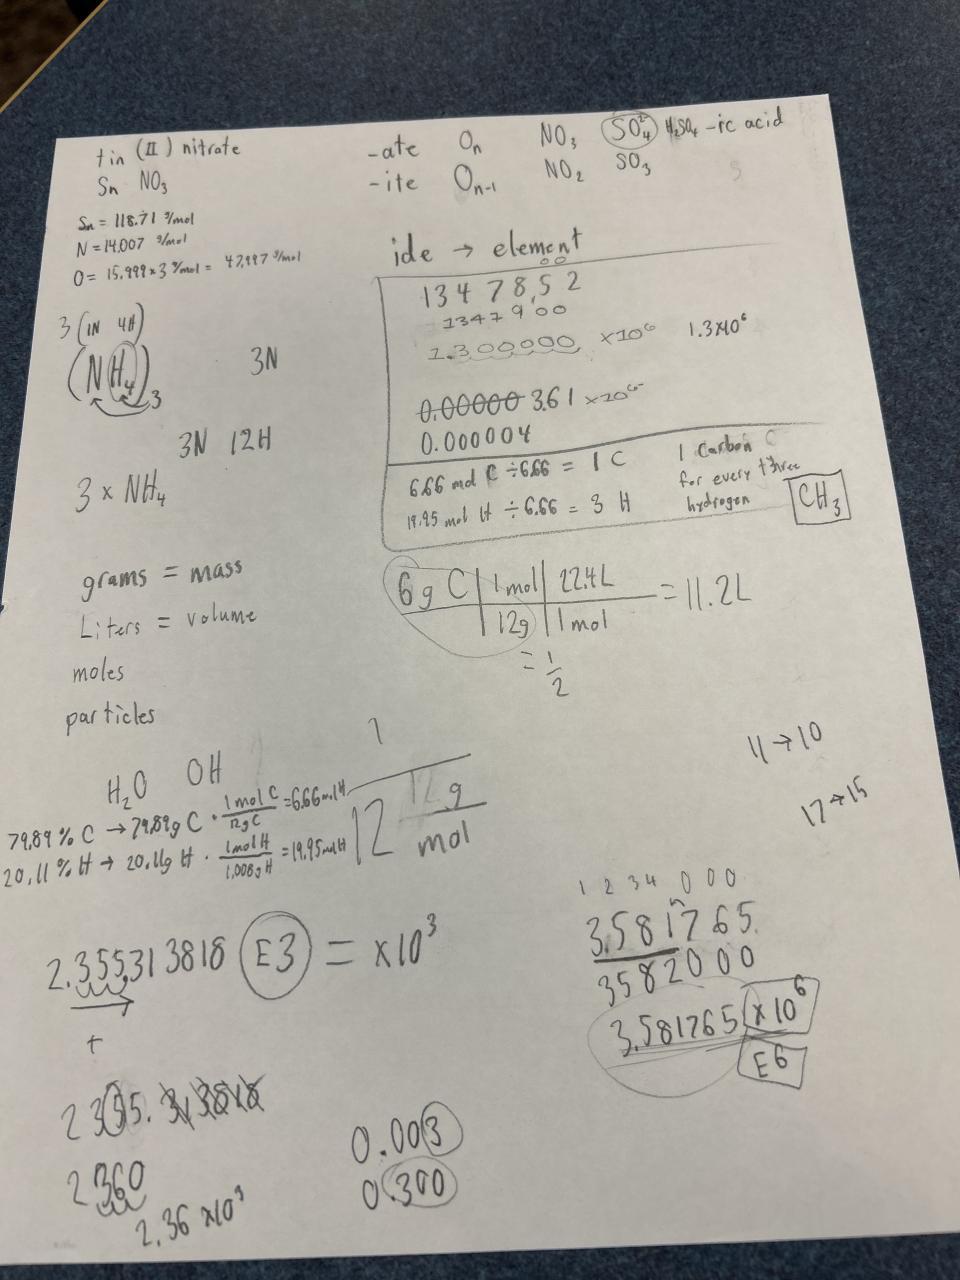 tin (II) nitrate
Sn NO₃
Sn = 118.71 g/mol
N = 14.007 g/mol
O = 15.999 x 3 g/mol = 47.997 g/mol
-ate Oₙ NO₃ SO₄²⁻ H₂SO₄ -ic acid
-ite Oₙ₋₁ NO₂ SO₃
ide → element
3 (1N 4H)
(NH₄)₃
3N
3N 12H
3 x NH₄
00
13478,52
1347900
1.300000 x10⁶ 1.3x10⁶
0.00000 3.61 x10⁻⁶
0.000004
6.66 mol C ÷ 6.66 = 1 C
19.95 mol H ÷ 6.66 = 3 H
1 Carbon C
for every three
hydrogen
CH₃
grams = mass
Liters = volume
moles
particles
6g C | 1 mol | 22.4L = 11.2L
12g | 1 mol
= 1/2
H₂O OH
79.89 % C → 79.89g C · 1 mol C / 12g C = 6.66 mol H
20.11 % H → 20.11g H · 1 mol H / 1.008g H = 19.95 mol H
1
12 12 g
mol
11 → 10
17 → 15
2.355313818 E3 = x10³
+
2355. 313818
2360
2.36 x10³
0.003
0.300
1 2 3 4 0 0 0
3,581765.
3582000
3.581765 x10⁶
E6